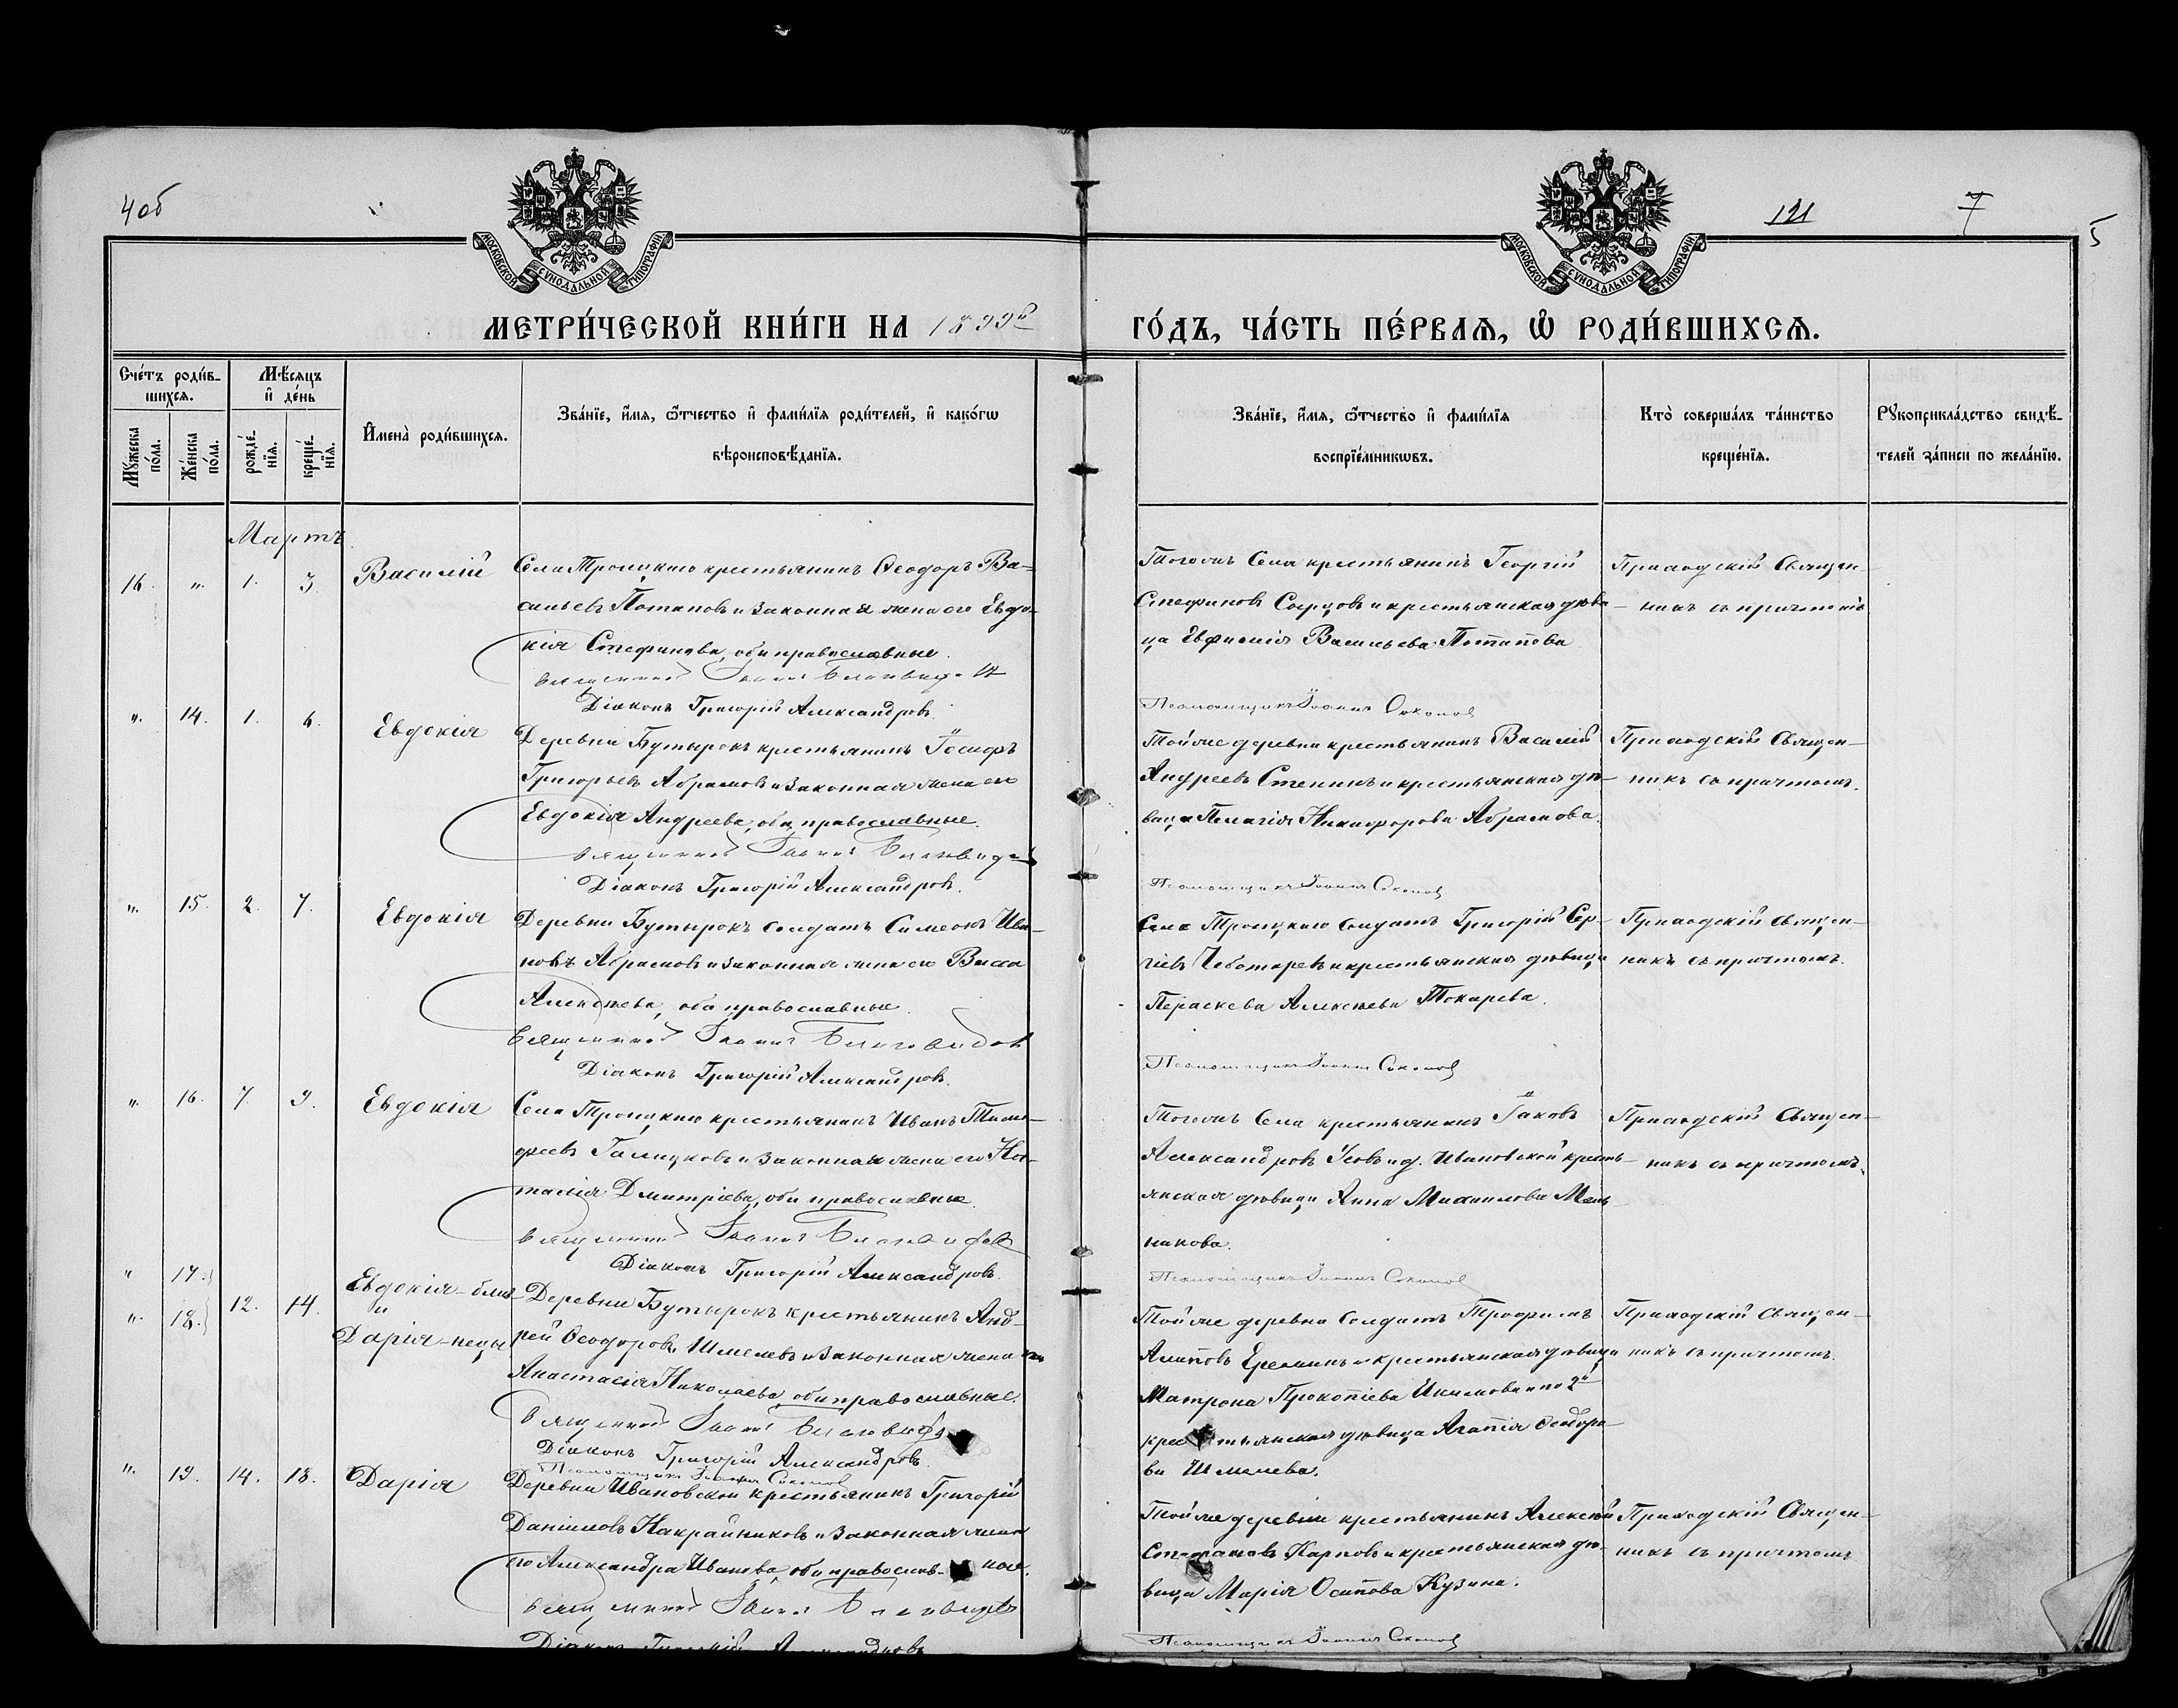 4об
121
7
5
МОСКОВСКОЙ СѴНОДАЛЬНОЙ ТИПОГРАФІИ
МОСКОВСКОЙ СѴНОДАЛЬНОЙ ТИПОГРАФІИ
МЕТРИ́ЧЕСКОЙ КНИ́ГИ НА 1899й ГО́ДЪ, ЧА́СТЬ ПЕ́РВАѦ, Ѽ РОДИ́ВШИХСѦ.
Сче́тъ роди́в-
шихсѧ.
Мѣ́сѧцъ
и҆ де́нь
Мꙋ́жеска по́ла.
Же́нска по́ла.
рожде́-
нїѧ.
креще́-
нїѧ.
И҆мена̀ роди́вшихсѧ.
Зва́нїе, и҆́мѧ, ѻ҆́тчество и҆ фами́лїѧ роди́телей, и҆ како́гѡ
вѣроисповѣ́данїѧ.
Зва́нїе, и҆́мѧ, ѻ҆́тчество и҆ фами́лїѧ
воспрїе́мникѡвъ.
Кто̀ соверша́лъ та́инство
креще́нїѧ.
Рꙋкоприкла́дство свидѣ́-
телей за́писи по жела́нїю.
Мартъ
16. „. 1. 3. Василій
Села Троицкаго крестьянинъ Ѳеодоръ Ва-
сильевъ Потаповъ и законная жена его Евдо-
кія Стефанова, оба православные.
Священникъ Іоаннъ Благовидовъ
Діаконъ Григорій Александровъ.
Тогожъ села крестьянинъ Георгій
Стефановъ и крестьянская дѣви-
ца Евфимія Васильева Потапова
Псаломщикъ Іоаннъ Соколовъ
Приходскій Священ-
никъ съ причтомъ
„. 14. 1. 6. Евдокія
Деревни Бутырокъ крестьянинъ Іосифъ
Григорьевъ Абрамовъ и законная жена его
Евдокія Андреева, оба православные.
Священникъ Іоаннъ Благовидовъ
Діаконъ Григорій Александровъ.
Той же деревни крестьянинъ Василій
Андреевъ Стенинъ и крестьянская дѣ-
вица Пелагія Никифорова Абрамова.
Псаломщикъ Іоаннъ Соколовъ
Приходскій Священ-
никъ съ причтомъ.
„. 15. 2. 7. Евдокія
Деревни Бутырокъ солдатъ Симеонъ Ива-
новъ Абрамовъ и законная жена его Васса
Алексѣева, оба православные.
Священникъ Іоаннъ Благовидовъ
Діаконъ Григорій Александровъ.
Села Троицкаго солдатъ Григорій Сер-
гіевъ Чеботаревъ и крестьянская дѣвица
Параскева Алексѣева Токарева.
Псаломщикъ Іоаннъ Соколовъ
Приходскій Священ-
никъ съ причтомъ.
„. 16. 7. 9. Евдокія
Села Троицкаго крестьянинъ Иванъ Тимо-
феевъ Галицковъ и законная жена его На-
талія Дмитріева, оба православные.
Священникъ Іоаннъ Благовидовъ
Діаконъ Григорій Александровъ.
Тогожъ села крестьянинъ Іаковъ
Александровъ Усовъ и д. Ивановской кресть-
янская дѣвица Анна Михаилова Мель-
никова.
Псаломщикъ Іоаннъ Соколовъ
Приходскій Священ-
никъ съ причтомъ.
„ 17.
„. 18. 12. 14.
Евдокія - близ-
и
Дарія - нецы
Деревни Бутырокъ крестьянинъ Анд-
рей Ѳеодоровъ Шмелевъ и законная жена его
Анастасія Николаева, оба православные.
Священникъ Іоаннъ Благовидовъ
Діаконъ Григорій Александровъ.
Псаломщикъ Іоаннъ Соколовъ
Той же деревни солдатъ Трофимъ
Алиповъ Ереминъ и крестьянская дѣвица
Матрона Прокопіева Акимова и по 2й
крестьянская дѣвица Агапія Ѳеодоро-
ва Шмелева.
Приходскій Священ-
никъ съ причтомъ.
„. 19. 14. 18. Дарія
Деревни Ивановской крестьянинъ Григорій
Даніиловъ Накрайниковъ и законная жена
его Александра Иванова, оба православ-ные.
Священникъ Іоаннъ Благовидовъ
Діаконъ Григорій Александровъ
Той же деревни крестьянинъ Алексѣй
Стефановъ Карповъ и крестьянская дѣ-
вица Марія Осипова Кузина.
Псаломщикъ Іоаннъ Соколовъ
Приходскій Священ-
никъ съ причтомъ